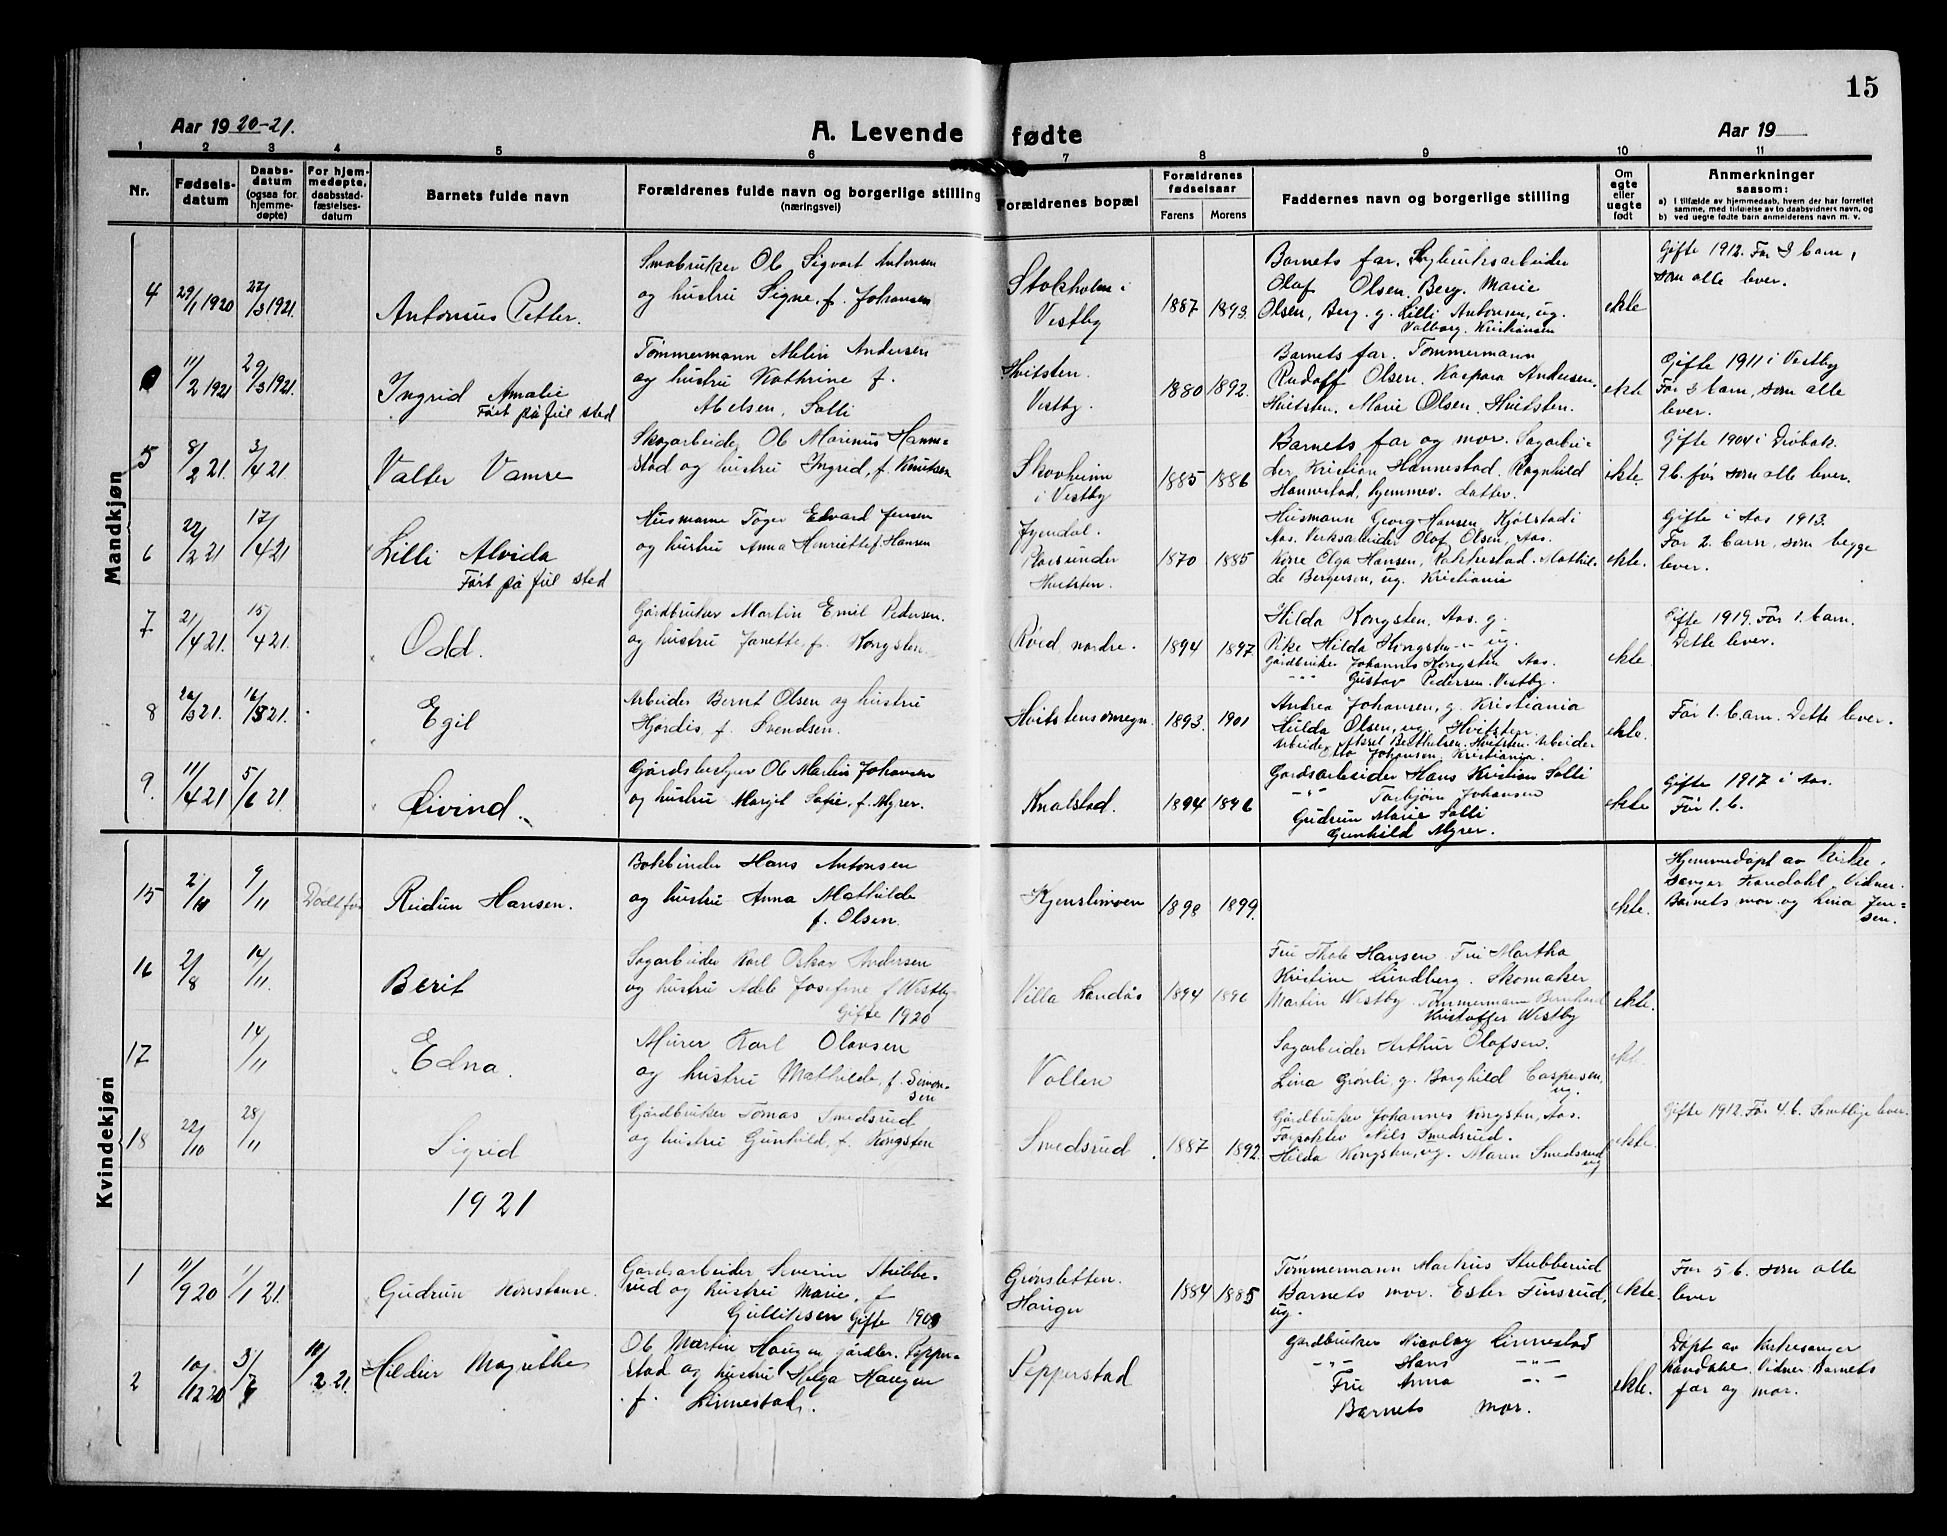 15
Aar 1920-21.
A. Levende fødte
Aar 19
1 2 3 4 5 6 7 8 9 10 11
Nr.
Fødselsdatum
Daabsdatum (ogsaa for hjemmedøpte)
For hjemmedøpte, daabsstadfæstelsesdatum
Barnets fulde navn
Forældrenes fulde navn og borgerlige stilling (næringsvei)
Forældrenes bopæl
Forældrenes fødselsaar
Farens Morens
Faddernes navn og borgerlige stilling
Om egte eller uegte født
Anmerkninger
saasom:
a) I tilfælde av hjemmedaab, hvem der har forrettet samme, med tilføielse av to daabsvidners navn, og
b) ved uegte fødte barn anmelderens navn m. v.
Mandkjøn
4 29/1 1920 27/3 1921. Antonius Petter.
Smabruker Ole Sigvart Antonsen
og hustru Signe, f. Johansen
Stokholm i
Vestby
1887 1893.
Barnets far. Sagbruksarbeider
Olaf Olsen, Berg. Marie
Olsen, Berg. g. Lilli Antonsen, ug.
Valborg Kristiansen
ekte
Gifte 1912. Før 3 barn,
som alle lever.
11/2 1921 29/3 1921. Ingrid Amalie
Ført på feil sted
Tømmermann Andersen
og hustru Kathrine f.
Abelsen, Solli
Hvitsten.
Vestby.
1880 1892.
Barnets far. Tømmermann
Rudolf Olsen. Kaspara Andersen.
Hvitsten. Marie Olsen, Hvitsten.
ekte
Gifte 1911 i Vestby
Før 3 barn, som alle
lever.
5 8/2 21 3/4 21 Valter Vamre
Skogarbeider Ole Marinus Hanne-
stad og hustru Ingrid, f. Knutsen
Skovheim
i Vestby
1885 1886
Barnets far og mor. Sagarbei-
der Kristian Hannestad. Ragnhild
Hannestad, hjemmev. datter.
ekte.
Gifte 1904 i Drøbak.
9 b. før som alle lever.
6 22/2 21 17/4 21 Lilli Alvida
Ført på feil sted
Husmann Edvard Jensen
og hustru Anna Henriette f. Hansen
under
Hvitsten.
1870 1885
Husmann Georg Hansen, Kjølstad i
Aas. Verksarbeider Olaf Olsen, Aas.
Kone Olga Hansen, Rakkestad. Mathil-
de Bergersen, ug. Kristiania
ekte.
Gifte i Aas 1913.
Før 2. barn, som begge
lever.
7 2/4 21. 15/4 21. Odd.
Gårdbruker Martin Emil Pedersen.
og hustru Janette f. Kongsten.
Røed nordre.
1894 1897
Hilda Kongsten, Aas. g.
Pike Hilda Kongsten -"- ug.
Gårdbruker Johannes Kongsten Aas.
-"- Gustav Pedersen. Vestby.
ekte.
Gifte 1919. Før 1. barn.
Dette lever.
8 20/3 21. 16/5 21. Egil
Arbeider Bernt Olsen og hustru
Hjørdis, f. Svendsen.
Hvitstens omegn.
1893. 1901
Andrea Johansen, g. Kristiania
Hilda Olsen, ug. Hvitsten.
Arbeider Aksel Berthelsen. Hvitsten. Arbeider
Otto Johansen, Kristiania.
ekte.
Før 1. barn. Dette lever.
9. 11/4 21 5/6 21 Øivind.
Gårdsbestyrer Ole Martin Johansen
og hustru Margit Sofie, f. Myrer.
Knalstad.
1894 1896
Gårdsarbeider Hans Kristian Solli
-"- Torbjørn Johansen
Gudrun Marie Solli
Gunhild Myrer.
ekte
Gifte 1917 i Aas.
Før 1. b.
Kvindekjøn
15 2/10 9/11 Dødtfød Reidun Hansen.
Bokbinder Hans Antonsen
og hustru Anna Mathilde
f. Olsen.
1898 1899.
ekte.
Hjemmedøpt av Kirke-
sanger Kandahl. Vidner.
Barnets mor og Lina Jen-
sen.
16 2/8 14/11. Berit
Sagarbeider Karl Oskar Andersen
og hustru Adele Josefine f. Westby.
Gifte 1920
Villa Landås
1894 1896
Fru Hansen. Fru Martha
Kristine Lundberg. Skomaker
Martin Westby. Tømmermann Bernhard
Kristoffer Westby
ekte.
17 14/11 Edna.
Murer Karl Olavsen
og hustru Mathilde, f. Simon-
sen
Vollen
Sagarbeider Arthur Olafsen.
Lina Grønli, g. Borghild Caspersen,
ug.
ekt.
18 22/10 28/11 Sigrid
Gårdbruker Tomas Smedsrud
og hustru Gunhild, f. Kongsten
Smedsrud
1887 1892.
Gårdbruker Johannes Kongsten, Aas.
Forpakter Nils Smedsrud.
Hilda Kongsten, ug. Maren Smedsrud
ug
ekte.
Gifte 1912. Før 4. b. Samtlige lever.
1921
1 11/9 20 1/1 21. Gudrun Konstanse.
Gårdsarbeider Severin Stubbe-
rud og hustru Marie, f.
Gulliksen Gifte 1908
Grønsletten.
Haugen
1884 1885
Tømmermann Markus Stubberud
Barnets mor. Ester Finsrud,
ug.
ekte.
Før 5 b. som alle
lever
2 10/12 20 10/2 21. Hildur Magrethe
Ole Martin Haugen gårdbr. Pepper-
stad og hustru Helga Haugen
f. Linnestad.
Pepperstad
Gårdbruker Nicolay Linnestad
-"- Hans -"-
Fru Anna -"-
Barnets mor.
ekte.
Døpt av Kirkesanger
Kandahl. Vidner. Barnets
far og mor.